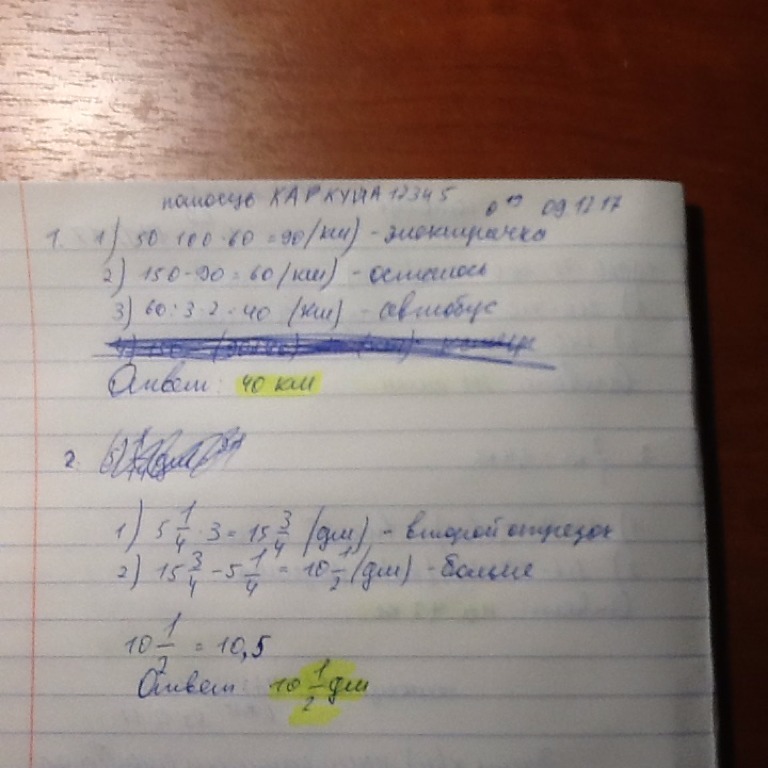 помощь КАРКУША12345 09.12.17
1. 1) 50 : 100 · 60 = 90 (км) - электричка
2) 150 - 90 = 60 (км) - осталось
3) 60 : 3 · 2 = 40 (км) - автобус
Ответ: 40 км
2.
1) 5 1/4 · 3 = 15 3/4 (дм) - второй отрезок
2) 15 3/4 - 5 1/4 = 10 1/2 (дм) - больше
10 1/2 = 10,5
Ответ 10 1/2 дм